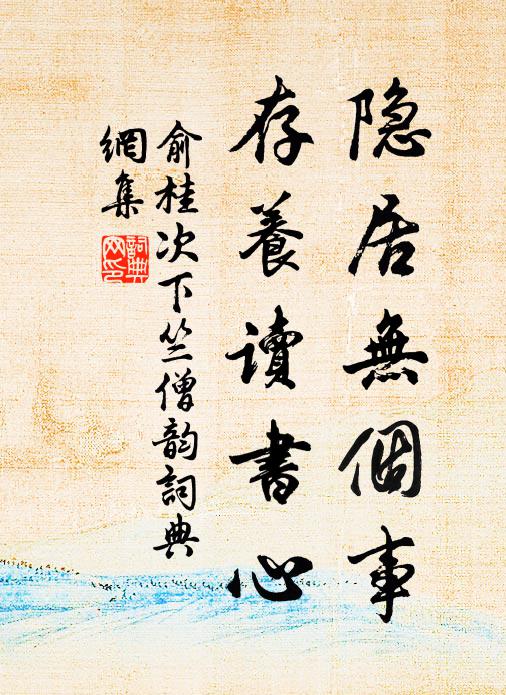 隐居無個事
存養讀書心
俞桂次下竺僧韵詞典
網集
詞典
网印